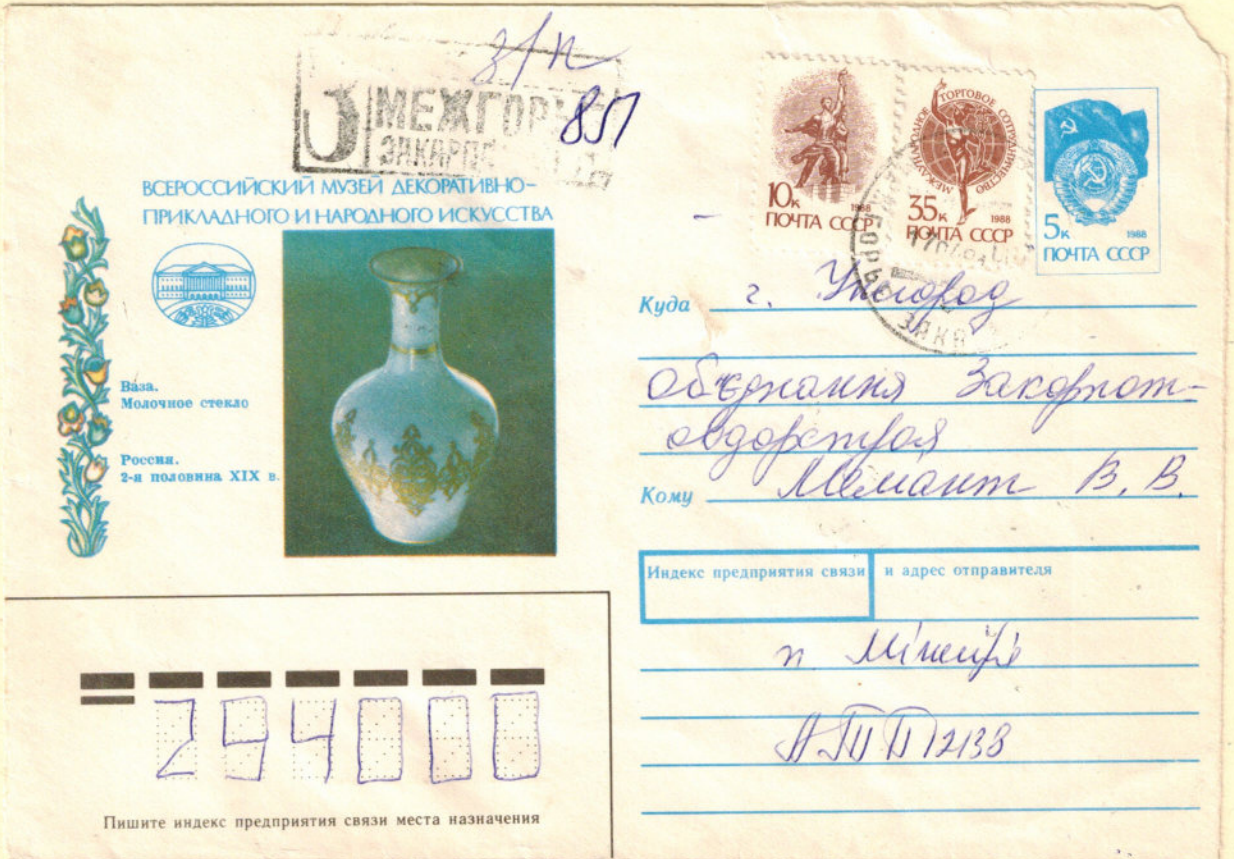 з/п
З МЕЖГОРЬЕ 851
ВСЕРОССИЙСКИЙ МУЗЕЙ ДЕКОРАТИВНО-
ПРИКЛАДНОГО И НАРОДНОГО ИСКУССТВА
Ваза.
Молочное стекло
Россия.
2-я половина XIX в.
10к 1988
ПОЧТА СССР
МЕЖДУНАРОДНОЕ ТОРГОВОЕ СОТРУДНИЧЕСТВО
35к 1988
ПОЧТА СССР
5к 1988
ПОЧТА СССР
Куда г. Ужгород
Об'єднання Закарпат-
Кому В. В.
Индекс предприятия связи и адрес отправителя
п Міжгір'я
АТП 12138
294000
Пишите индекс предприятия связи места назначения